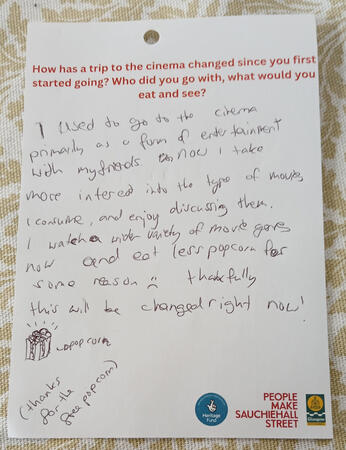 How has a trip to the cinema changed since you first
started going? Who did you go with, what would you
eat and see?
I used to go to the cinema
primarily as a form of entertainment
with my friends. Now I take
more interest into the type of movies
I consume, and enjoy discussing them.
I watch a wider variety of movie genres
now and eat less popcorn for
some reason :( thankfully
this will be changed right now!
popcorn
(thanks
for the
free popcorn)
Heritage
Fund
PEOPLE
MAKE
SAUCHIEHALL
STREET